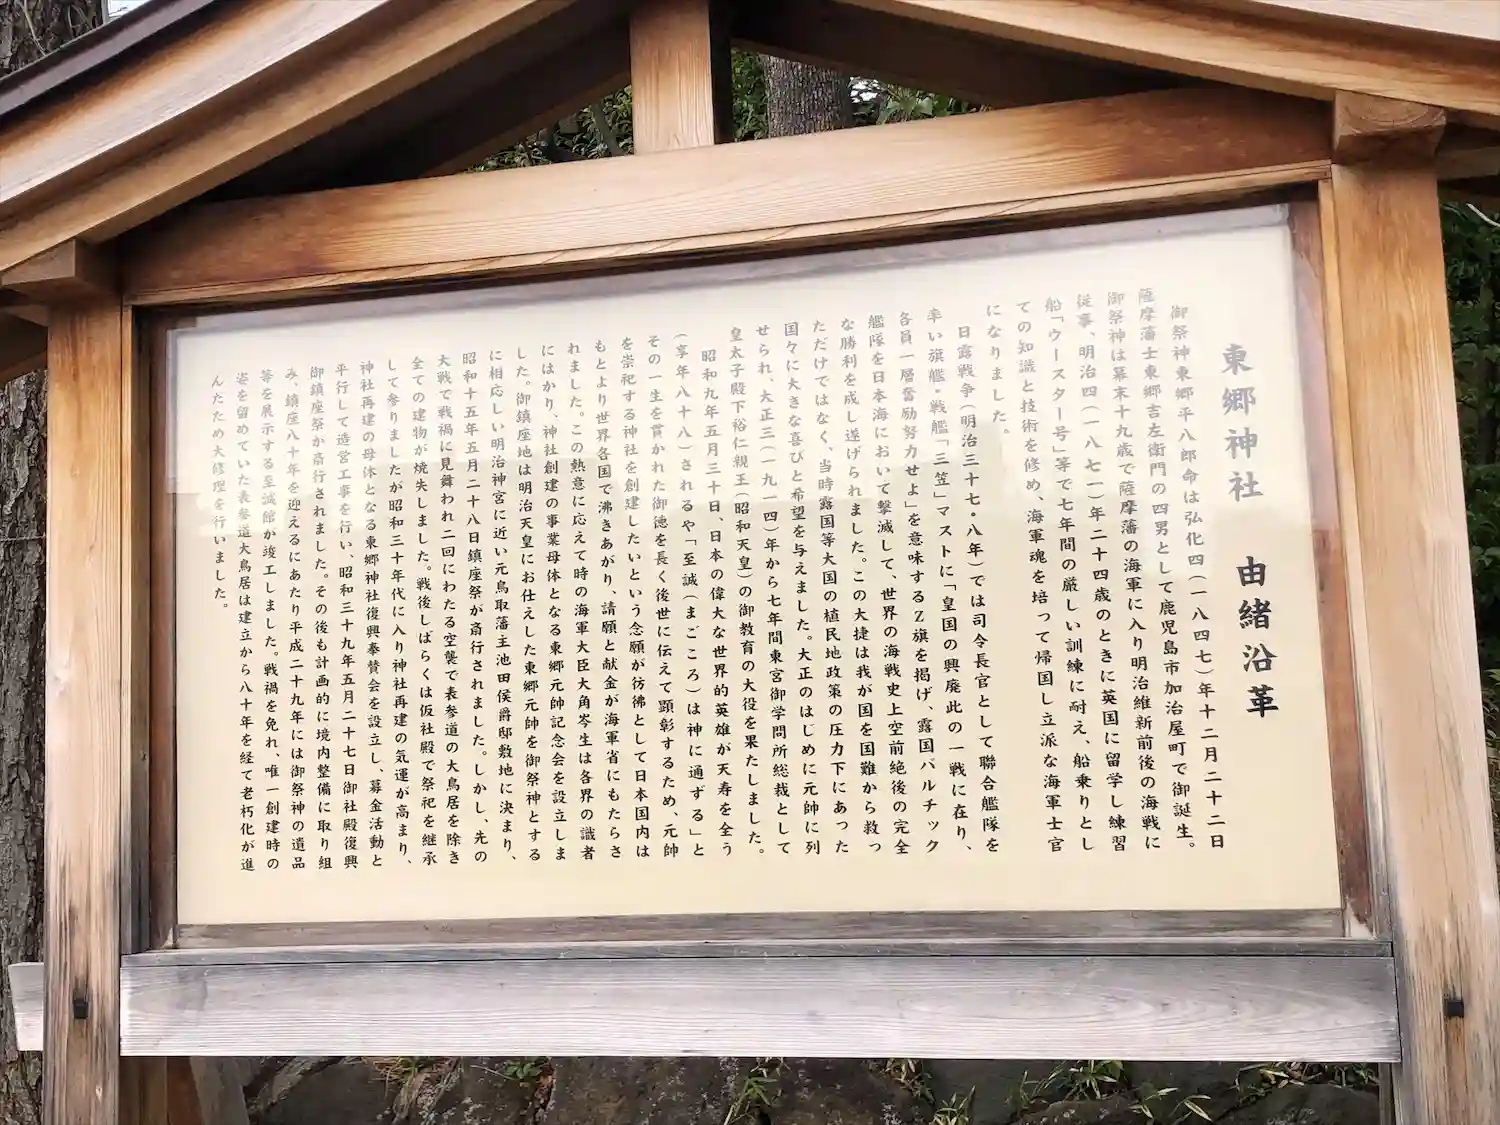 東郷神社 由緒沿革
御祭神東郷平八郎命は弘化四(一八四七)年十二月二十二日
薩摩藩士東郷吉左衛門の四男として鹿児島市加治屋町で御誕生。
御祭神は幕末十九歳で薩摩藩の海軍に入り明治維新前後の海戦に
従事、明治四(一八七一)年二十四歳のときに英国に留学し練習
船「ウースター号」等で七年間の厳しい訓練に耐え、船乗りとし
ての知識と技術を修め、海軍魂を培って帰国し立派な海軍士官
になりました。
日露戦争(明治三十七・八年)では司令長官として聯合艦隊を
率い旗艦・戦艦「三笠」マストに「皇国の興廃此の一戦に在り、
各員一層奮励努力せよ」を意味するZ旗を掲げ、露国バルチック
艦隊を日本海において撃滅して、世界の海戦史上空前絶後の完全
な勝利を成し遂げられました。この大捷は我が国を国難から救っ
ただけではなく、当時露国等大国の植民地政策の圧力下にあった
国々に大きな喜びと希望を与えました。大正のはじめに元帥に列
せられ、大正三(一九一四)年から七年間東宮御学問所総裁として
皇太子殿下裕仁親王(昭和天皇)の御教育の大役を果たしました。
昭和九年五月三十日、日本の偉大な世界的英雄が天寿を全う
(享年八十八)されるや「至誠(まごころ)は神に通ずる」と
その一生を貫かれた御徳を長く後世に伝えて顕彰するため、元帥
を崇祀する神社を創建したいという念願が彷彿として日本国内は
もとより世界各国で沸きあがり、請願と献金が海軍省にもたらさ
れました。この熱意に応えて時の海軍大臣大角岑生は各界の識者
にはかり、神社創建の事業母体となる東郷元帥記念会を設立しま
した。御鎮座地は明治天皇にお仕えした東郷元帥を御祭神とする
に相応しい明治神宮に近い元鳥取藩主池田侯爵邸敷地に決まり、
昭和十五年五月二十八日鎮座祭が斎行されました。しかし、先の
大戦で戦禍に見舞われ二回にわたる空襲で表参道の大鳥居を除き
全ての建物が焼失しました。戦後しばらくは仮社殿で祭祀を継承
して参りましたが昭和三十年代に入り神社再建の気運が高まり、
神社再建の母体となる東郷神社復興奉賛会を設立し、募金活動と
平行して造営工事を行い、昭和三十九年五月二十七日御社殿復興
御鎮座祭が斎行されました。その後も計画的に境内整備に取り組
み、鎮座八十年を迎えるにあたり平成二十九年には御祭神の遺品
等を展示する至誠館が竣工しました。戦禍を免れ、唯一創建時の
姿を留めていた表参道大鳥居は建立から八十年を経て老朽化が進
んたため大修理を行いました。